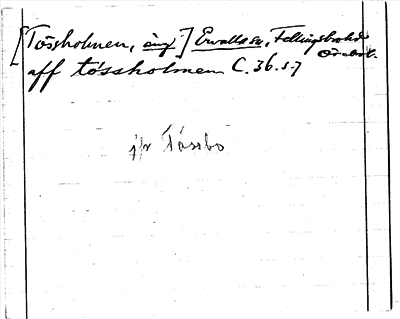 [Tössholmen, äng] Ervalla sn, Fellingsbro hd
Örebro l.
aff tössholmen C. 36. s. 7
jfr Tössbo